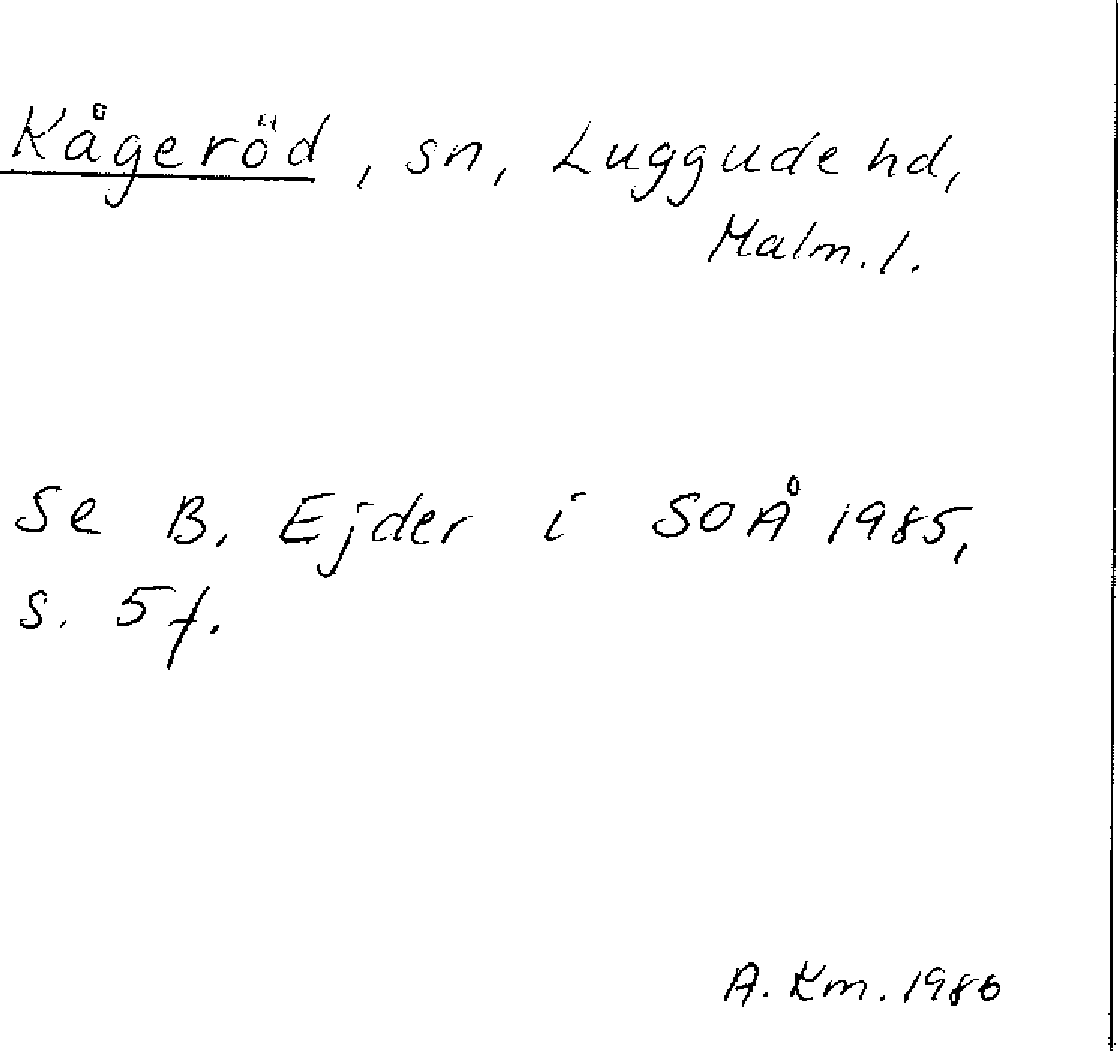 Kågeröd, sn, Luggude hd,
Malm. l.
Se B. Ejder i SOÅ 1985,
s. 5 f.
A. Km. 1986